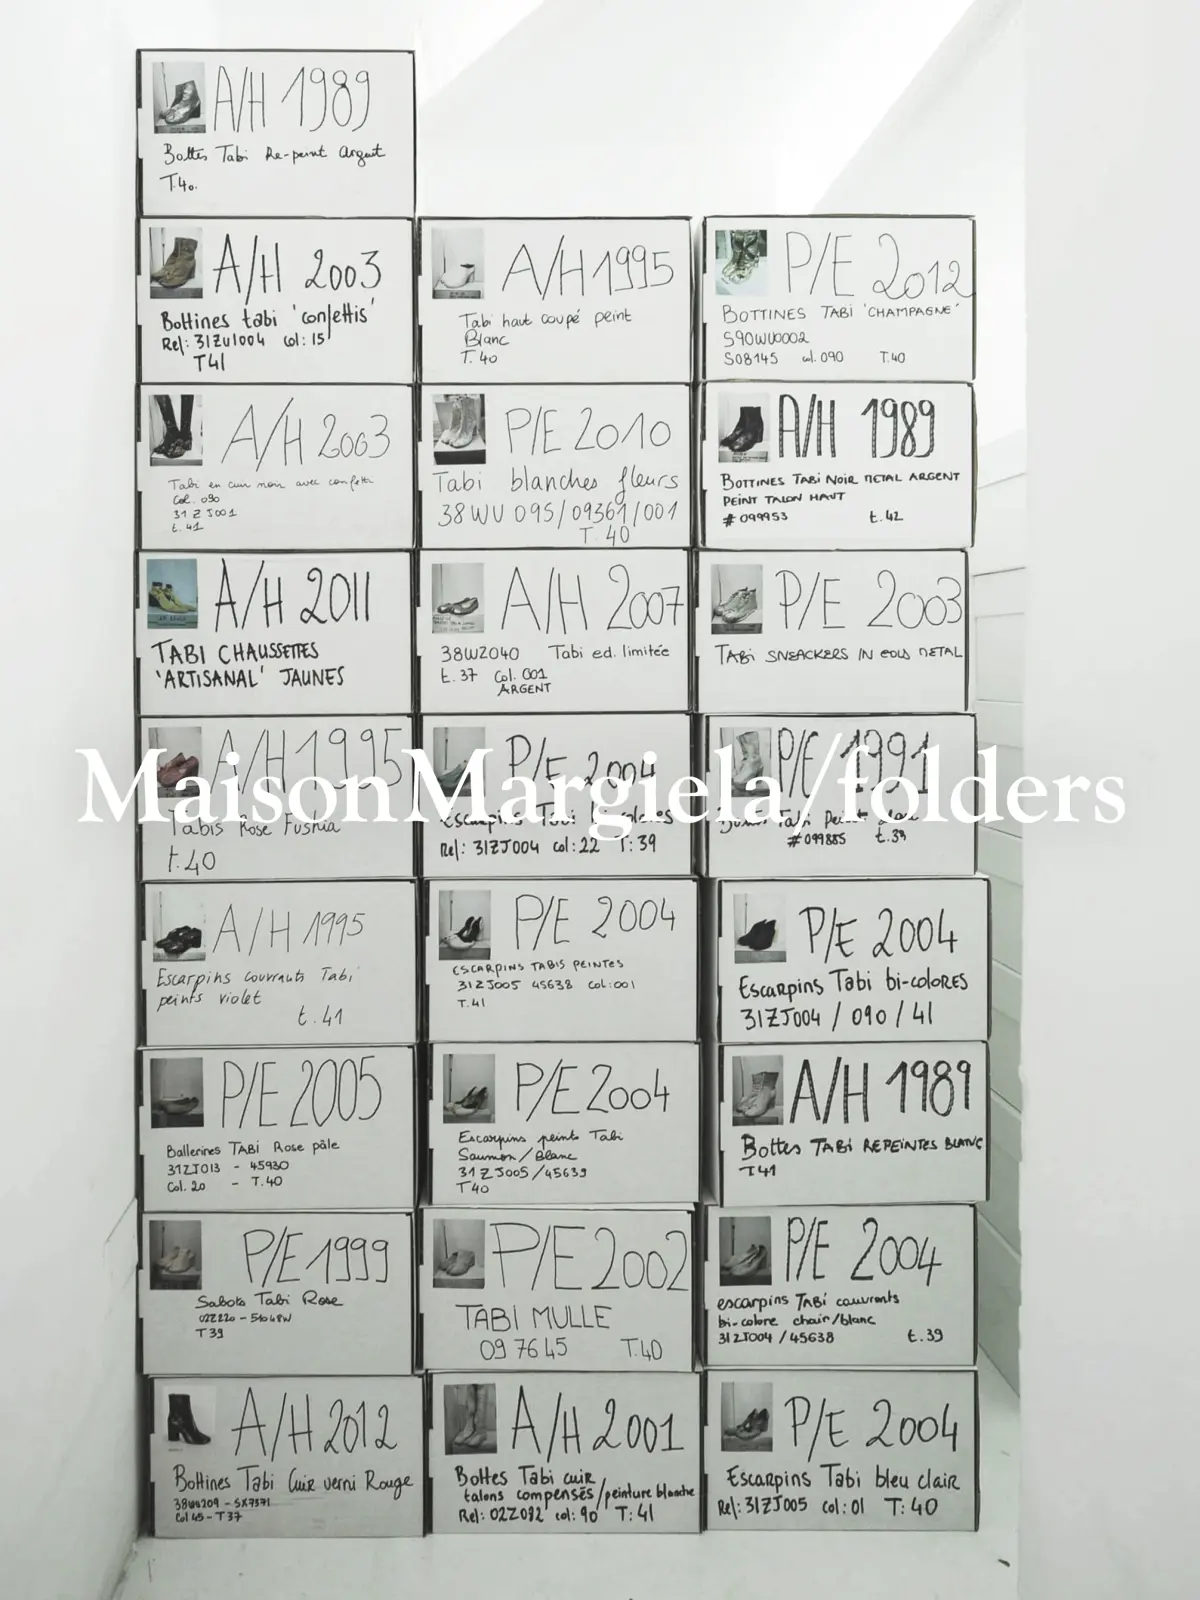 A/H 1989
Bottes Tabi Re-peint Argent
T.40.
A/H 2003
Bottines tabi 'confettis'
Ref: 31ZU1004 col: 15
T41
A/H 1995
Tabi haut coupé peint
Blanc
T. 40
P/E 2012
BOTTINES TABI 'CHAMPAGNE'
S90WU0002
S08145 col. 090 T.40
A/H 2003
Tabi en cuir noir avec confetti
Col. 090
31 Z J001
t. 41
P/E 2010
Tabi blanches fleurs
38WU 095/09361/001
T. 40
A/H 1989
BOTTINES TABI NOIR METAL ARGENT
PEINT TALON HAUT
# 099953 t.42
A/H 2011
TABI CHAUSSETTES
'ARTISANAL' JAUNES
A/H 2007
38WZ040 Tabi ed. limitée
t.37 Col. 001
ARGENT
P/E 2003
TABI SNEACKERS IN GOLD METAL
A/H 1995
Tabis Rose Fushia
t.40
P/E 2004
Escarpins Tabi bi-colores
Ref: 31ZJ004 col: 22 T: 39
P/E 1991
Tabi Peint
# 099885 t.39
MaisonMargiela/folders
A/H 1995
Escarpins couvrants Tabi
peints violet
t.41
P/E 2004
ESCARPINS TABIS PEINTES
31ZJ005 45638 Col:001
T.41
P/E 2004
Escarpins Tabi bi-COLORES
31ZJ004 / 090 / 41
P/E 2005
Ballerines TABI Rose pâle
31ZJ013 - 45930
Col. 20 - T.40
P/E 2004
Escarpins peints Tabi
Saumon / Blanc
31 Z J005 /45639
T40
A/H 1989
Bottes TABI REPEINTES BLANC
T41
P/E 1999
Sabots Tabi Rose
02Z220 -
T39
P/E 2002
TABI MULLE
09 76 45 T.40
P/E 2004
escarpins TABI couvrants
bi-colore chair/blanc
31ZJ004 /45638 t.39
A/H 2012
Bottines Tabi Cuir verni Rouge
38WU209 - SX7571
Col 45 - T37
A/H 2001
Bottes Tabi cuir
talons compensés/peinture blanche
Ref: 02Z092 col: 90 T: 41
P/E 2004
Escarpins Tabi bleu clair
Ref: 31ZJ005 col: 01 T: 40